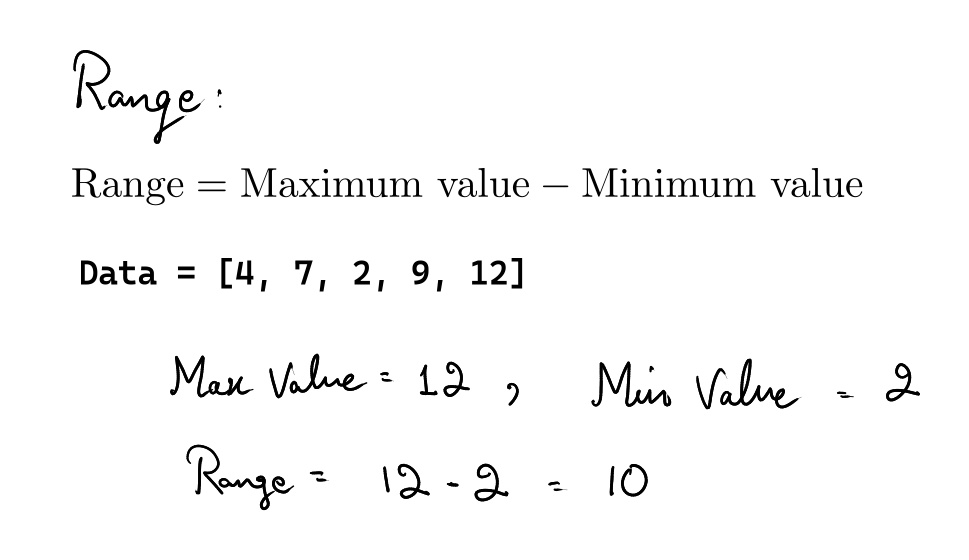 Range:
Range = Maximum value − Minimum value
Data = [4, 7, 2, 9, 12]
Max Value = 12 , Min Value = 2
Range = 12 - 2 = 10